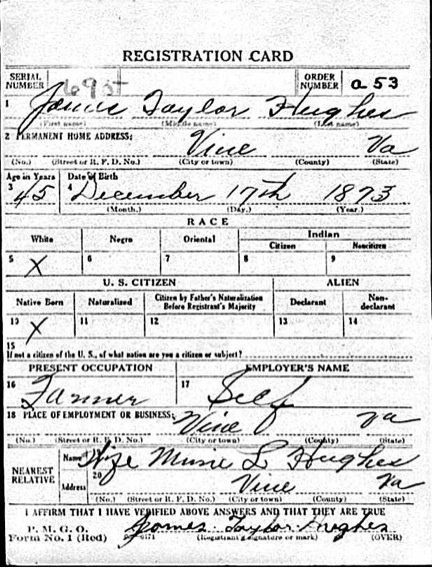 REGISTRATION CARD
SERIAL NUMBER 695 ORDER NUMBER a 53
1 James Taylor Hughes
(First name) (Middle name) (Last name)
2 PERMANENT HOME ADDRESS:
Vine Va
(No.) (Street or R. F. D. No.) (City or town) (County) (State)
Age in Years Date of Birth
3 45 4 December 17th 1873
(Month.) (Day.) (Year.)
RACE
White Negro Oriental Indian
Citizen Noncitizen
5 X 6 7 8 9
U. S. CITIZEN ALIEN
Native Born Naturalized Citizen by Father's Naturalization Before Registrant's Majority Declarant Non-declarant
10 X 11 12 13 14
15
If not a citizen of the U. S., of what nation are you a citizen or subject?
PRESENT OCCUPATION EMPLOYER'S NAME
16 Farmer 17 Self
18 PLACE OF EMPLOYMENT OR BUSINESS:
Vine Va
(No.) (Street or R. F. D. No.) (City or town) (County) (State)
NEAREST RELATIVE
Name L Hughes
20
Address Vine Va
(No.) (Street or R. F. D. No.) (City or town) (County) (State)
I AFFIRM THAT I HAVE VERIFIED ABOVE ANSWERS AND THAT THEY ARE TRUE
P. M. G. O.
Form No. 1 (Red) James Taylor Hughes
(Registrant's signature or mark) (OVER)